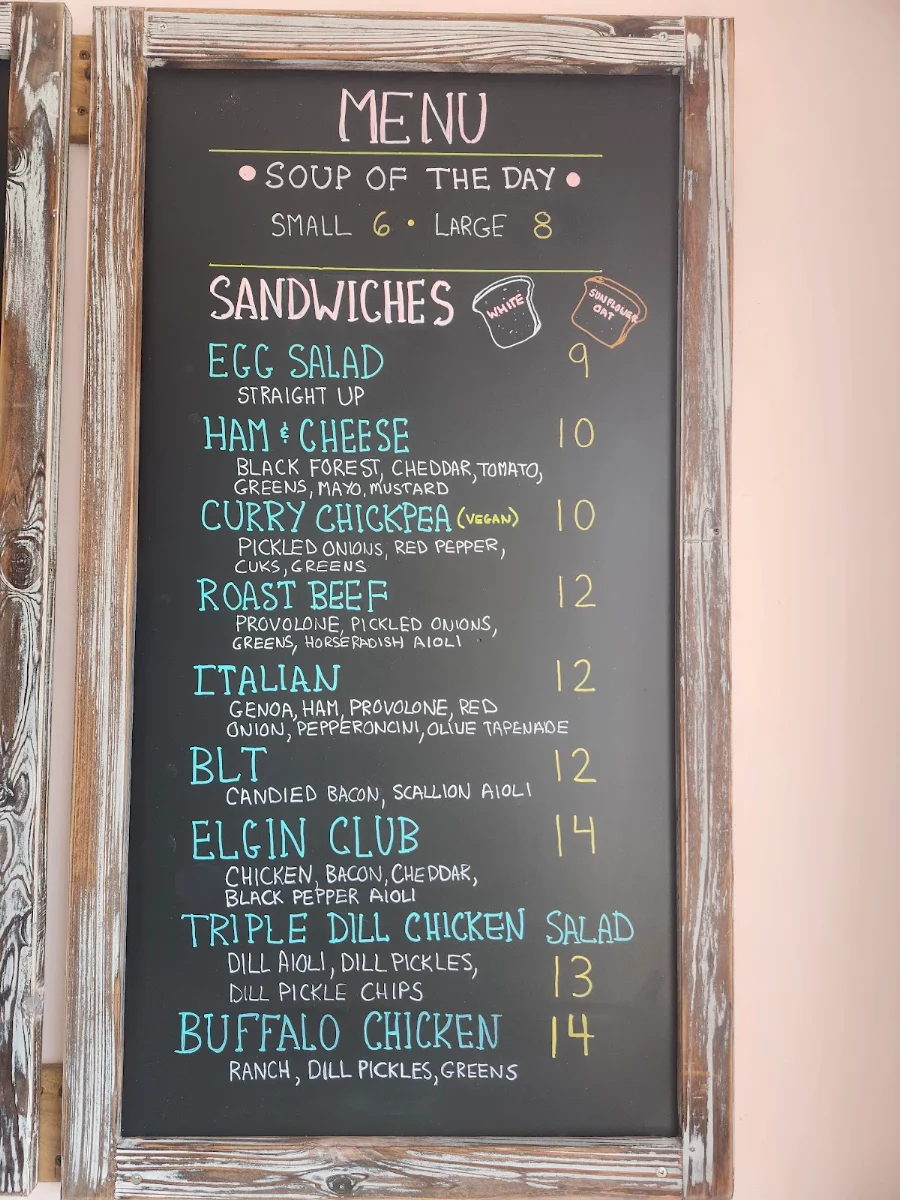 MENU
• SOUP OF THE DAY •
SMALL 6 • LARGE 8
SANDWICHES WHITE SUNFLOWER OAT
EGG SALAD 9
STRAIGHT UP
HAM & CHEESE 10
BLACK FOREST, CHEDDAR, TOMATO,
GREENS, MAYO, MUSTARD
CURRY CHICKPEA (VEGAN) 10
PICKLED ONIONS, RED PEPPER,
CUKS, GREENS
ROAST BEEF 12
PROVOLONE, PICKLED ONIONS,
GREENS, HORSERADISH AIOLI
ITALIAN 12
GENOA, HAM, PROVOLONE, RED
ONION, PEPPERONCINI, OLIVE TAPENADE
BLT 12
CANDIED BACON, SCALLION AIOLI
ELGIN CLUB 14
CHICKEN, BACON, CHEDDAR,
BLACK PEPPER AIOLI
TRIPLE DILL CHICKEN SALAD
DILL AIOLI, DILL PICKLES, 13
DILL PICKLE CHIPS
BUFFALO CHICKEN 14
RANCH, DILL PICKLES, GREENS